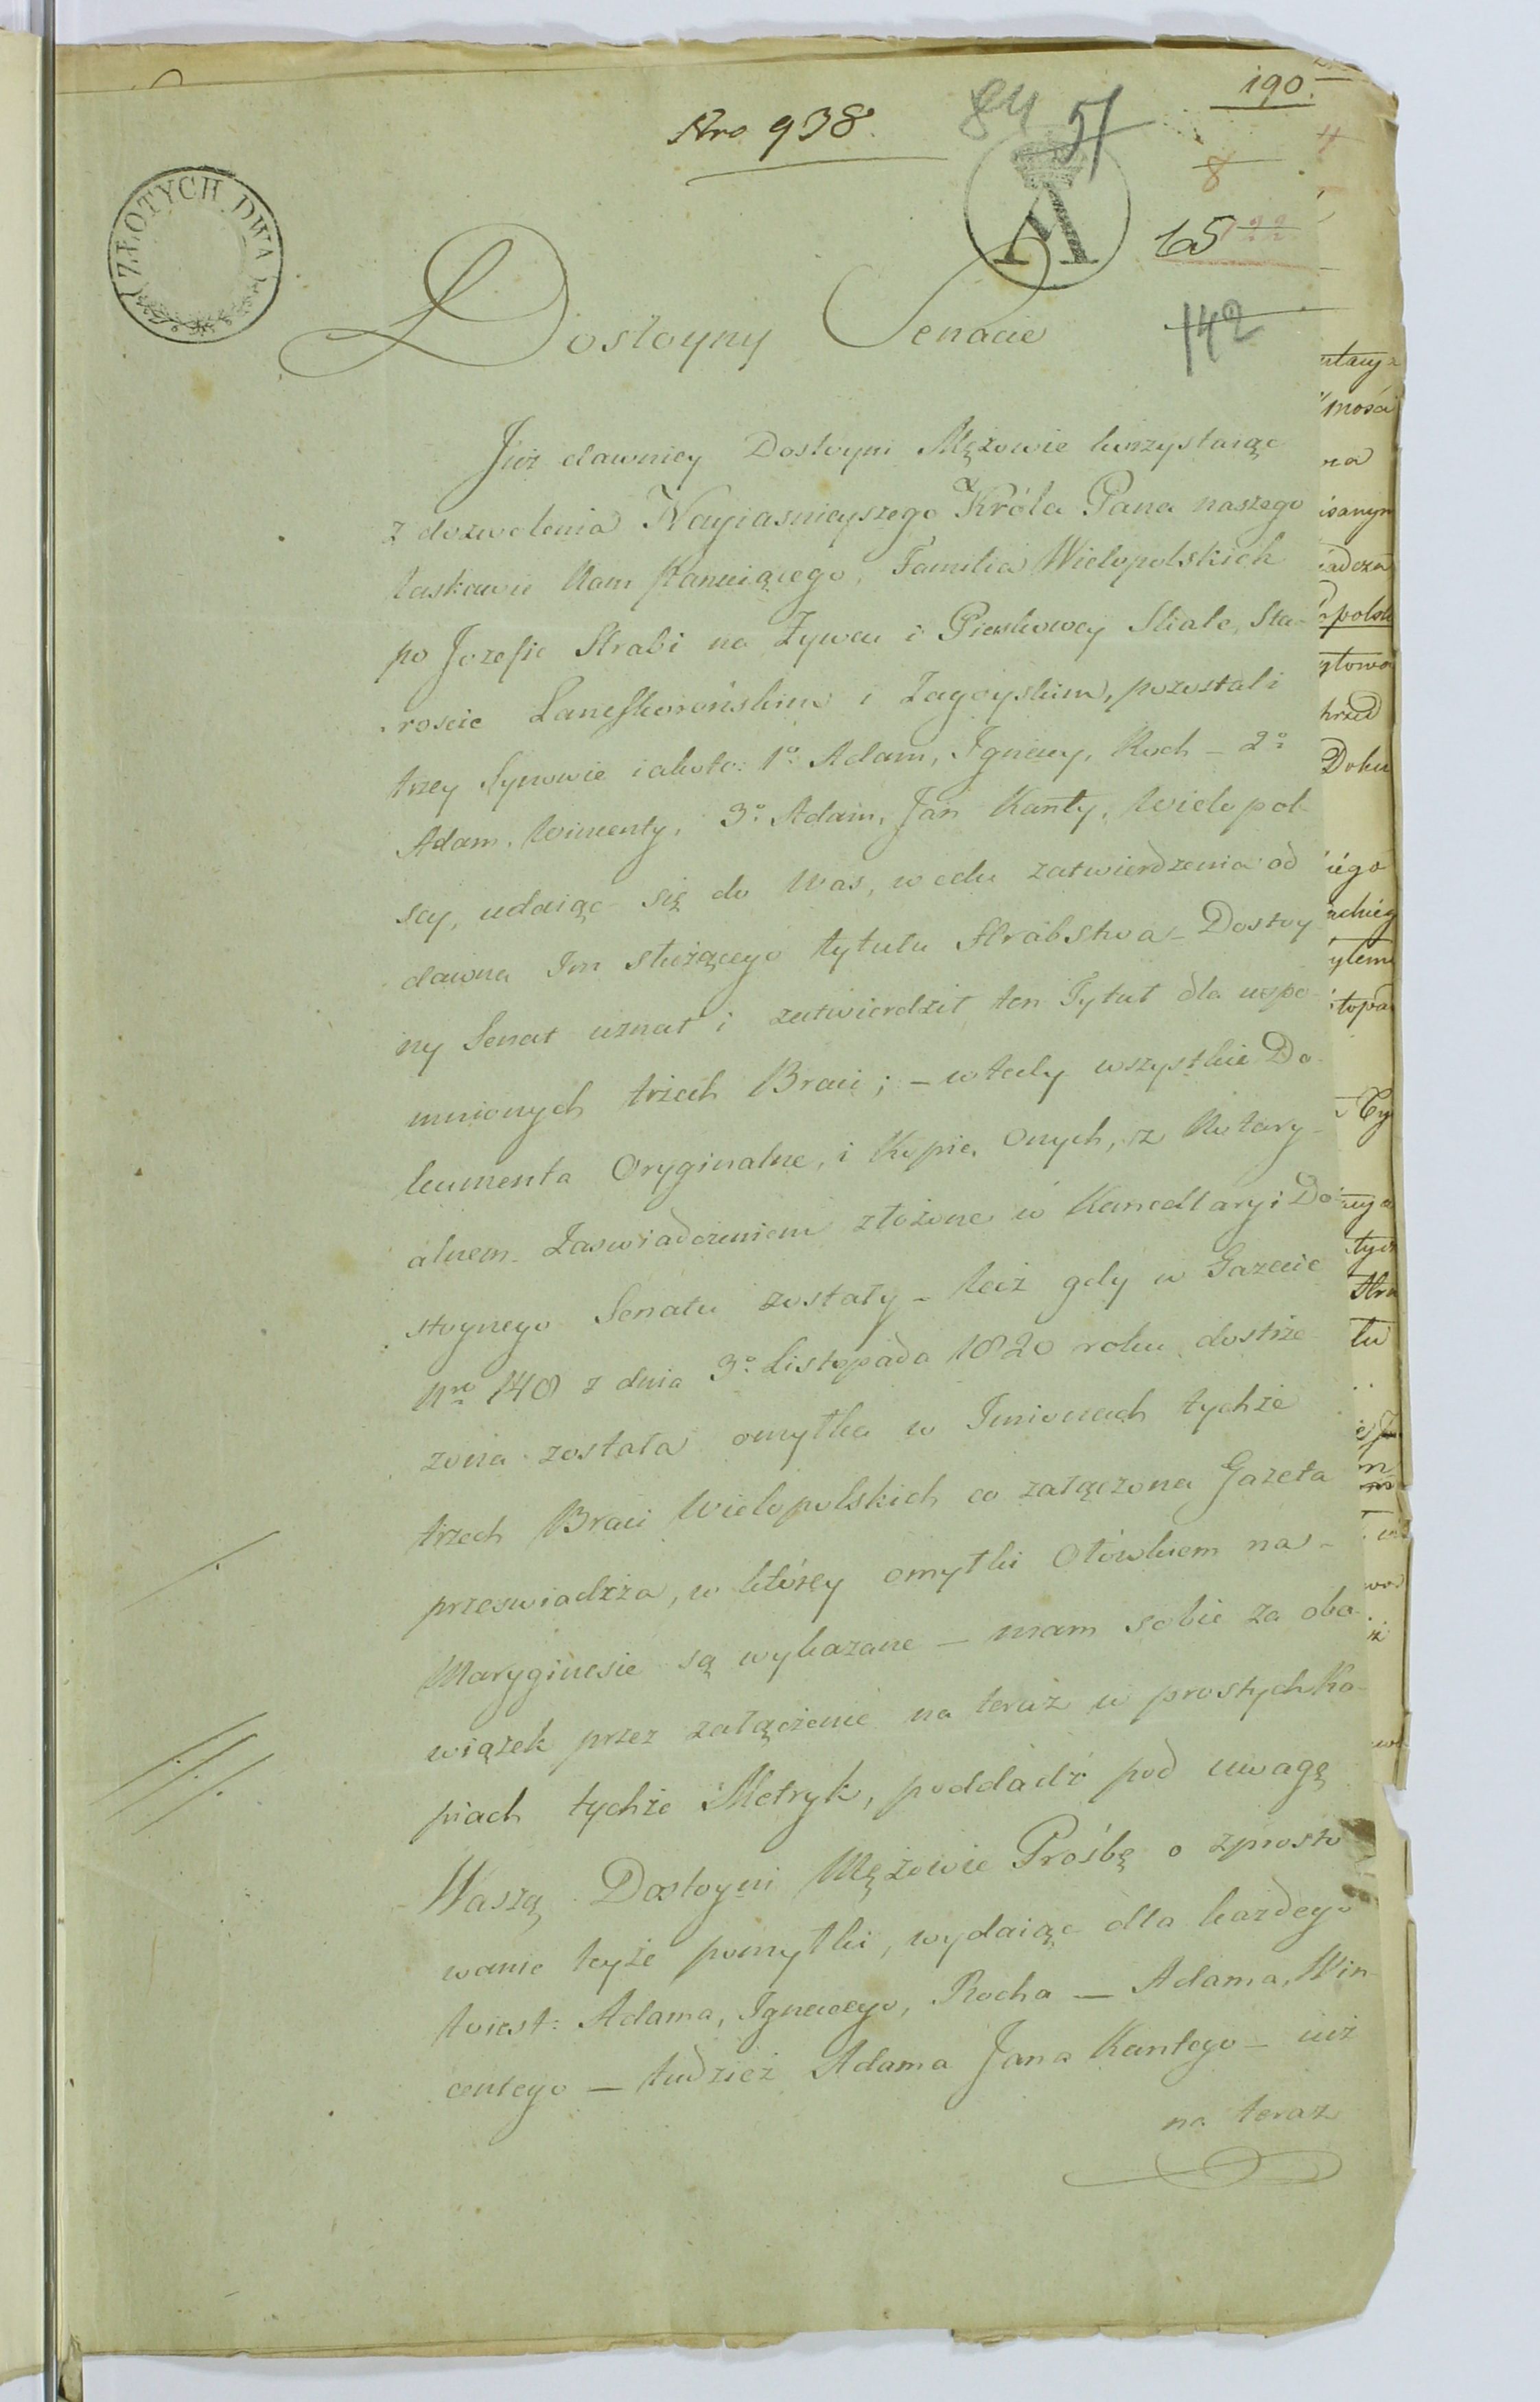 190.
Nro 938.
84 51
8
ZŁOTYCH DWA
A
15 122
142
Dostoyny Senacie
Już dawniey Dostoyni Mężowie korzystaiąc
z dozwolenia Nayiasnieyszego Króla Pana naszego
łaskawie Nam Panuiącego, Familia Wielopolskich
po Jozefie Hrabi na Żywcu i Pieskowey Skale, Sta-
roscie Lanckorońskim i Zagoyskim, pozostali
trzey Synowie iakoto: 1o Adam, Ignacy, Roch - 2o
Adam, Wincenty, 3o Adam, Jan Kanty, Wielopol-
scy, udaiąc się do Was, w celu zatwierdzenia od
dawna Im służącego tytułu Hrabstwa - Dostoy
ny Senat uznał i zatwierdził ten Tytuł dla wspo-
mnionych trzech Braci; - wtedy wszystkie Do-
kumenta Oryginalne, i Kopie Onych, z Notary-
alnem Zaswiadczeniem złożone w Kancellaryi Do-
stoynego Senatu zostały - lecz gdy w Gazecie
Nro 148 z dnia 3o Listopada 1820 roku dostrze
żona została omyłka w Imionach tychże
trzech Braci Wielopolskich co załączona Gazeta
przeswiadcza, w którey omyłki Ołówkiem na-
Maryginesie są wykazane - mam sobie za obo-
wiązek przez załączenie na teraz w prostych Ko-
piach tychże Metryk, poddadź pod uwagę
Waszą Dostoyni Mężowie Prośbę o zprosto
wanie teyże pomyłki, wydaiąc dla każdego
toiest: Adama, Ignacego, Rocha — Adama, Win-
centego — tudzież Adama Jana Kantego - iuż
na teraz